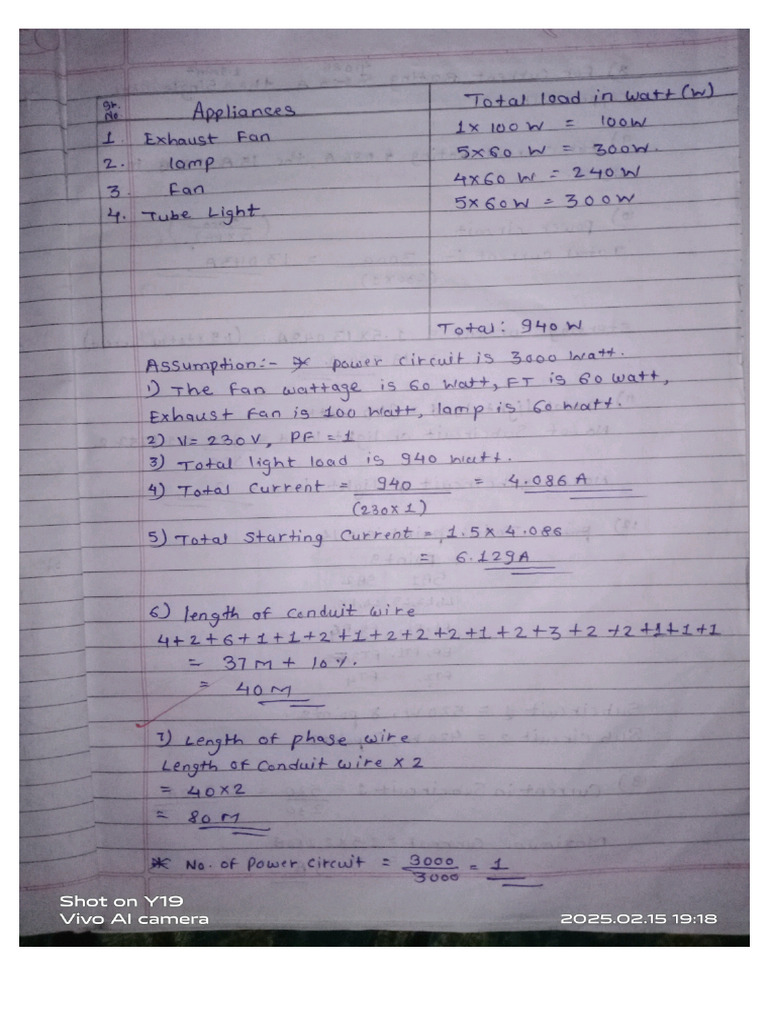 Sr. No. Appliances Total load in watt (W)
1. Exhaust Fan 1 x 100 W = 100W
2. lamp 5 x 60 W = 300W.
3. Fan 4 x 60 W = 240 W
4. Tube Light 5 x 60W = 300W
Total: 940 W
Assumption:- * power circuit is 3000 watt.
1) The fan wattage is 60 watt, FT is 60 watt,
Exhaust Fan is 100 watt, lamp is 60 watt.
2) V = 230 V, PF = 1
3) Total light load is 940 watt.
4) Total Current = 940 / (230 x 1) = 4.086 A
5) Total Starting Current = 1.5 x 4.086
= 6.129A
6) length of conduit wire
4+2+6+1+1+2+1+2+2+2+1+2+3+2+2+1+1+1
= 37 M + 10 %.
= 40 M
7) Length of phase wire
Length of Conduit wire x 2
= 40 x 2
= 80 M
* No. of Power Circuit = 3000 / 3000 = 1
Shot on Y19
Vivo AI camera
2025.02.15 19:18